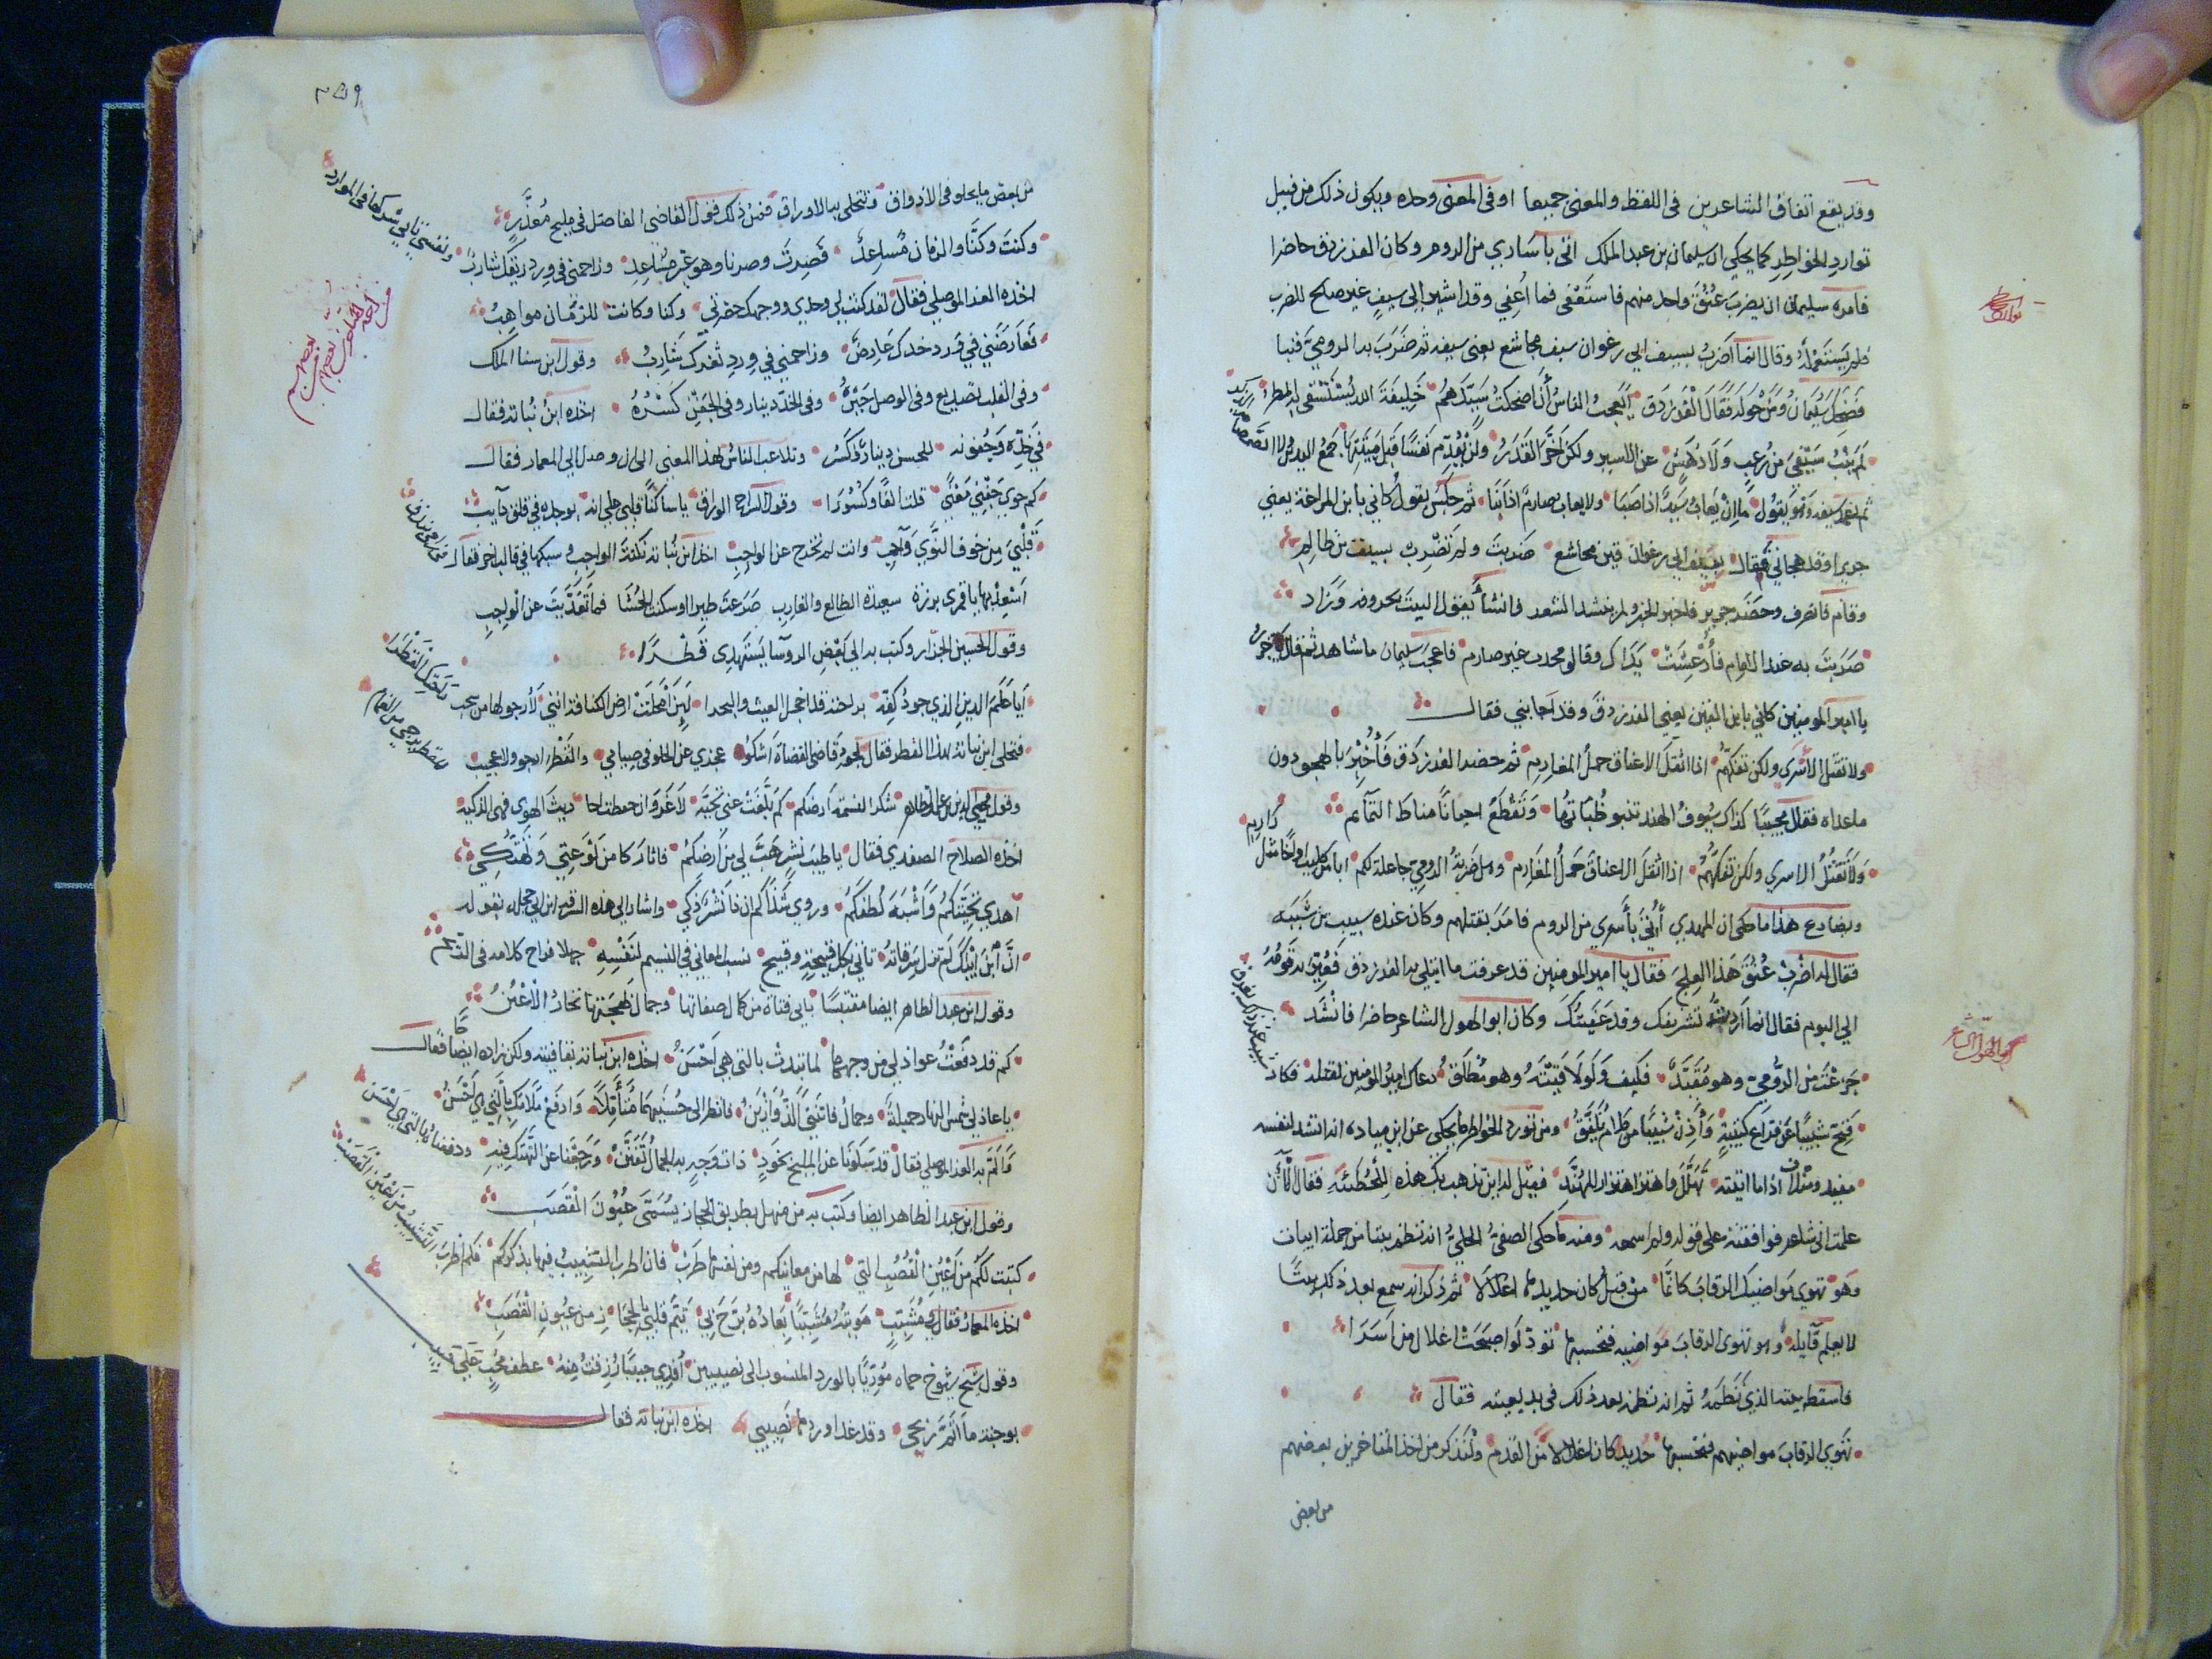 وقد يقع اتفاق الشاعرين في اللفظ والمعنى جميعا او في المعنى وحده ويكون ذلك من قبيل
توارد الخواطر كما يحكى ان سليمان بن عبد الملك اتى باسارى من الروم وكان الفرزدق حاضرا
فامره سليمان ان يضرب عنق واحد منهم فاستعفى فما اعفي وقد اشير الى سيف غير صالح للضرب
فلم يستعمله وقال انما اضرب بسيف ابي رغوان سيف مجاشع يعني سيفه ثم ضرب به الرومي فنبا
فضحك سليمان ومن حوله فقال الفرزدق ايعجب الناس ان اضحكت سيدهم خليفة الله يستسقى به المطر
لم ينب سيفي من رعب ولا دهش عن الاسير ولكن اخر القدر ولن يقدم نفسا قبل ميتتها جمع اليدين ولا الصمصامة الذكر
ثم غمد سيفه وهو يقول ما ان يعاب سيد اذا صبا ولا يعاب صارم اذا نبا ثم جلس يقول كاني بابن المراغة يعني
جريرا وقد هجاني فقال بسيف ابي رغوان قين مجاشع ضربت ولم تضرب بسيف بن ظالم
وقام فانصرف وحضر جرير فاخبر الخبر ولم ينشد الشعر فانشأ يقول البيت بحروفه وزاد
ضربت به عند الامام فأرعشت يداك وقالوا محدث غير صارم فاعجب سليمان ما شاهد ثم قال جرير
يا امير المومنين كاني بابن القين يعني الفرزدق وقد اجابني فقال
ولا نقتل الاسرى ولكن نفكهم اذا اثقل الاعناق حمل المغارم ثم حضر الفرزدق فأخبر بالهجو دون
ما عداه فقال مجيبا كذاك سيوف الهند تنبو ظباتها وتقطع احيانا مناط التمائم
ولا نقتل الاسرى ولكن نفكهم اذا اثقل الاعناق حمل المغارم وهل ضربة الرومي جاعلة لكم ابا من كليب او اخا مثل دارم
ويضارع هذا ما حكى ان المهدي أتي بأسرى من الروم فامر بقتلهم وكان عنده شبيب بن شيبه
فقال له اضرب عنق هذا العلج فقال يا امير المومنين قد عرفت ما ابتلي به الفرزدق فعير به قومه
الى اليوم فقال انما اردت تشريفك وقد عفيتك وكان ابو الهول الشاعر حاضرا فانشد
جزعت من الرومي وهو مقيد فكيف ولو لاقيته وهو مطلق دعاك امير المومنين لقتله فكاد شبيب عند ذلك يفرق
فنح شبيبا عن قراع كتيبة وأدن شبيبا من كلام يلفق ومن توارد الخواطر ما يحكى عن ابن ميادة انه انشد لنفسه
مفيد ومتلاف اذا ما اتيته تهلل واهتز اهتزاز المهند فقيل له اين يذهب بك هذه للحطيئة فقال الآن
علمت اني شاعر فوافقته على قوله ولم اسمعه ومنه ما حكى الصفي الحلي انه نظم بيتا من جملة ابيات
وهو تهوى مواضيك الرقاب كانما من قبل كان حديدها اغلالا ثم ذكر انه سمع بعد ذلك بيتا
لا يعلم قايله وهو تهوى الرقاب مواضيه فتحسبها تود لو اصبحت اغلال من اسرا
فاسقط بيته الذي نظمه ثم انه نظمه بعد ذلك في بديعيته فقال
تهوى الرقاب مواضيهم فتحسبها حديدها كان اغلالا من القدم ولنذكر من اخذ المتاخرين بعضهم
من بعض
توارد الخواطر
ابو الهول الشاعر
٢٥٩
من بعض ما يحلو في الاذواق وتتحلى به الاوراق فمن ذلك قول القاضي الفاضل في مليح معذر
وكنت وكنا والزمان مساعد فصرت وصرنا وهو غير مساعد وزاحمني في ورد ريقك شارب ونفسي تابى شركها في الموارد
اخذه العز الموصلي فقال لقد كنت لي وحدي ووجهك حضرتي وكنا وكانت للزمان مواهب
فعارضني في ورد خدك عارض وزاحمني في ورد ثغرك شارب وقول ابن سنا الملك
وفي القلب تصديع وفي الوصل جبره وفي الخد دينار وفي الجفن كسره اخذه ابن نباته فقال
في خده وجفونه للحسن دينار وكسر وتلاعب الناس بهذا المعنى الى ان وصل الى المعمار فقال
كم حوى جفني معنى قلت الفا وكسورا وقول السراج الوراق يا ساكنا قلبي على انه بوجده في قلق دايب
قلبي من خوف النوى واجب وانت لم تخرج عن الواجب اخذ ابن نباته نكتة الواجب وسبكها في قالب اخر فقال
اسعد بها يا قمري برزة سعيدة الطالع والغارب صرعت طيرا وسكنت الحشا فما تعديت عن الواجب
وقول الحسين الجزار وكتب به الى بعض الروسا يستهدي قطرا
أيا علم الدين الذي جود كفه براحته قد اخجل الغيث والبحرا لئن امحلت ارض الكنافة انني لأرجو لها من سحب راحتك القطرا
فتحلى ابن نباتة بهذا القطر فقال لجود قاضي القضاة اشكو عجزي عن الحلو في صيامي والقطر ارجو ولا عجيب للقطر يرجى من الغمام
وقول محيي الدين بن عبد الظاهر شكرا لنسمة ارضكم كم بلغت عني تحيه لا غرو ان حفظت احاديث الهوى فهي الذكيه
اخذه الصلاح الصفدي فقال يا طيب نشر هب لي من ارضكم فاثار كامن لوعتي وتهتكي
أهدى تحيتكم وأشبه لطفكم وروى شذاكم ان ذا نشر ذكي واشار الى هذه السرقه ابن ابي حجله بقوله
ان ابن ايبك لم تزل سرقاته تاتي بكل قبيحة وقبيح نسب المعاني في النسيم لنفسه جهلا فراح كلامه في الريح
وقول ابن عبد الظاهر ايضا مقتبسا بابي فتاة من كمال صفاتها وجمال بهجتها تحار الاعين
كم قد دفعت عواذلي عن وجهها لما تبدت بالتي هي احسن اخذه ابن نباتة بقافيته ولكن زاده ايضاحا فقال
يا عاذلي شمس النهار جميلة وجمال فاتنتي الذ وازين فانظر الى حسنيهما متأملا وادفع ملامك بالتي هي احسن
والم به العز الموصلي فقال قد سلونا عن المليح بخود ذات وجه به الجمال تفنن ورجعنا عن التهتك فيه ودفعناه بالتي هي احسن
وقول ابن عبد الظاهر ايضا وكتب به من منهل بطريق الحجاز يسمى عيون القصب
كتبت لكم من اعين القصب التي لها من معانيكم ومن نفسها طرب فان اطرب التشبيب فيها بذكركم فكم اطرب التشبيب من اعين القصب
اخذه المعمار فقال في مشبب هويته مشببا بعاده برح بي تيم قلبي بالحجاز من عيون القصب
وقول شيخ شيوخ حماه موريا بالورد المنسوب الى نصيبين أفدي حبيبا رزقت منه عطف محب على حبيب
بوجنة ما اتم ربحي وقد غدا وردها نصيبي اخذه ابن نباته فقال